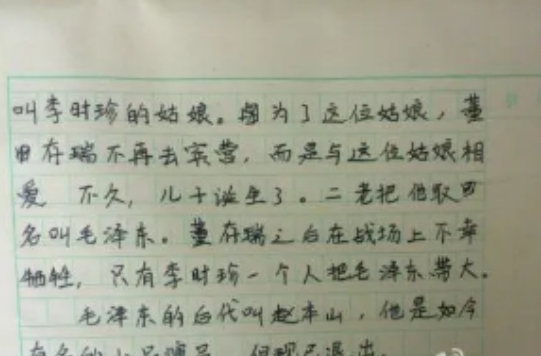 叫李时珍的姑娘。因为了这位姑娘，董
存瑞不再去军营，而是与这位姑娘相
爱 不久，儿子诞生了。二老把他取
名叫毛泽东。董存瑞之后在战场上不幸
牺牲，只有李时珍一个人把毛泽东带大。
毛泽东的后代叫赵本山，他是如今
有名的小品演员，但现已退出。